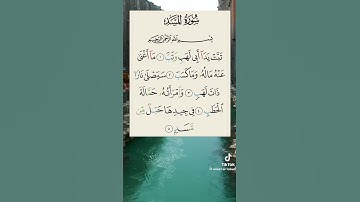 سُورَةُ المَسَد
بِسْمِ اللَّهِ الرَّحْمَٰنِ الرَّحِيمِ
تَبَّتْ يَدَا أَبِي لَهَبٍ وَتَبَّ ١ مَا أَغْنَىٰ
عَنْهُ مَالُهُ وَمَا كَسَبَ ٢ سَيَصْلَىٰ نَارًا
ذَاتَ لَهَبٍ ٣ وَامْرَأَتُهُ حَمَّالَةَ
الْحَطَبِ ٤ فِي جِيدِهَا حَبْلٌ مِّن
مَّسَدٍ ٥
TikTok